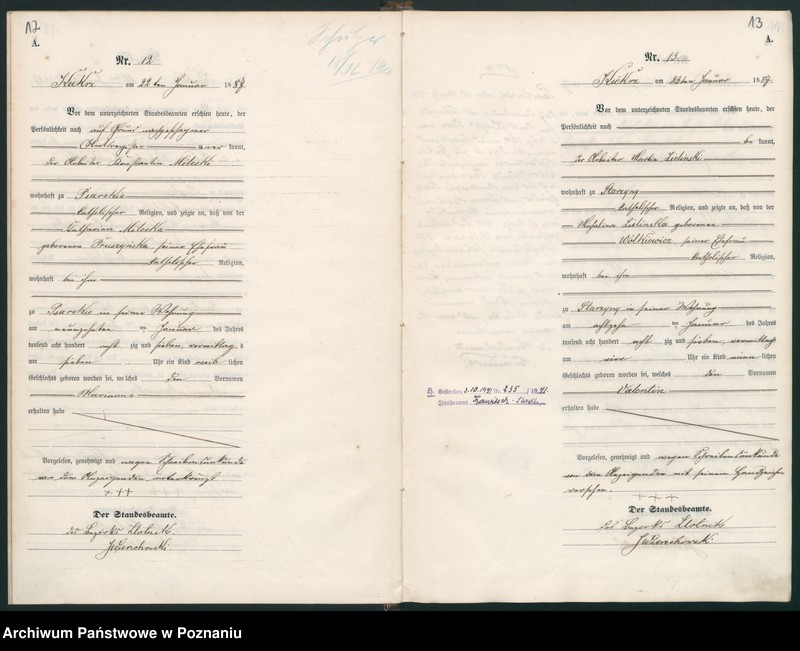 12
A.
Nr. 12
Kiekrz am 22ten Januar 1887
Vor dem unterzeichneten Standesbeamten erschien heute, der
Persönlichkeit nach auf Grund
kannt,
der Arbeiter Konstantin Milecki
wohnhaft zu Psarskie
katholischer Religion, und zeigte an, daß von der
Katharina Milecka
geborenen Pruszynska seiner Ehefrau
katholischer Religion,
wohnhaft bei ihm
zu Psarskie in seiner Wohnung
am neunzehnten ten Januar des Jahres
tausend acht hundert acht zig und sieben, vormittag s
um sieben Uhr ein Kind weib lichen
Geschlechts geboren worden sei, welches den Vornamen
Marianna
erhalten habe
Vorgelesen, genehmigt und wegen Schreibensunkunde
von dem Anzeigenden unterkreuzt
+++
Der Standesbeamte.
des Bezirks Zlotnik.
13
A.
Nr. 13.
Kiekrz am 23ten Januar 1887
Vor dem unterzeichneten Standesbeamten erschien heute, der
Persönlichkeit nach
be kannt,
der Arbeiter Martin Lidinski
wohnhaft zu Starzyny
katholischer Religion, und zeigte an, daß von der
Lidinska geborenen
Wolkiewicz seiner Ehefrau
katholischer Religion,
wohnhaft bei ihm
zu Starzyny in seiner Wohnung
am achtzehn ten Januar des Jahres
tausend acht hundert acht zig und sieben, vormittags
um vier Uhr ein Kind männ lichen
Geschlechts geboren worden sei, welches den Vornamen
Valentin
erhalten habe
H. Gestorben 3.10.1941 Nr. 235 / 1941
Standesamt
Vorgelesen, genehmigt und wegen Schreibensunkunde
von dem Anzeigenden mit seinem Handzeichen
versehen.
+++
Der Standesbeamte.
des Bezirks Zlotnik
Archiwum Państwowe w Poznaniu